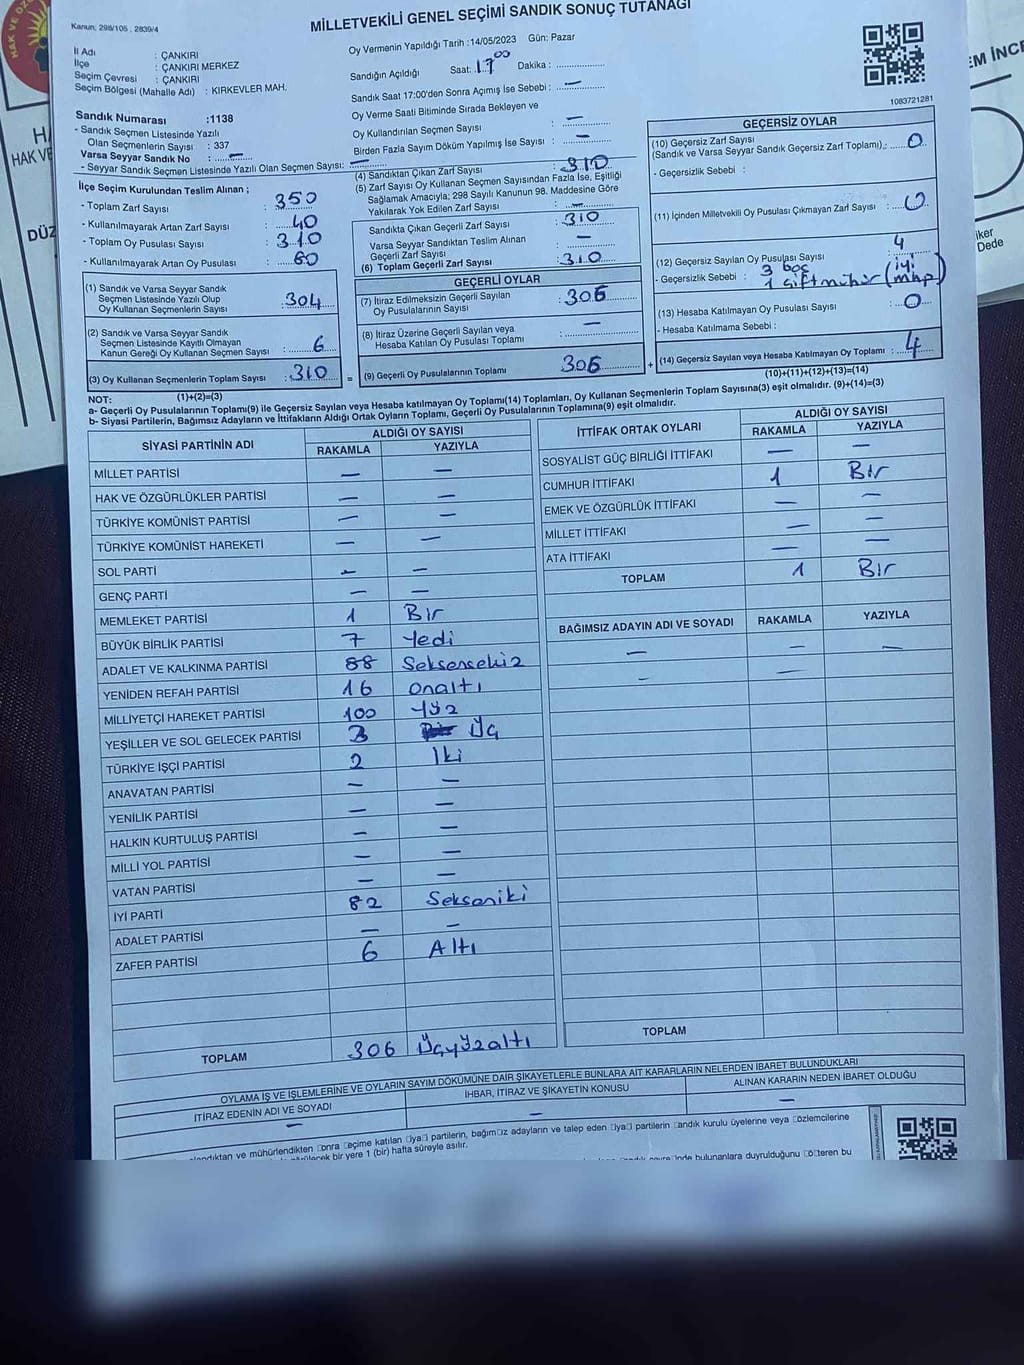 HAK VE ÖZ
HAK VE
DÜZ
EM İNCE
iker
Dede
Kanun; 298/105 , 2839/4
MİLLETVEKİLİ GENEL SEÇİMİ SANDIK SONUÇ TUTANAĞI
İl Adı : ÇANKIRI
İlçe : ÇANKIRI MERKEZ
Seçim Çevresi : ÇANKIRI
Seçim Bölgesi (Mahalle Adı) : KIRKEVLER MAH.
Oy Vermenin Yapıldığı Tarih :14/05/2023 Gün; Pazar
Sandığın Açıldığı Saat: 17 00 Dakika :
Sandık Saat 17:00'den Sonra Açımış İse Sebebi : —
Oy Verme Saati Bitiminde Sırada Bekleyen ve
Oy Kullandırılan Seçmen Sayısı : —
Birden Fazla Sayım Döküm Yapılmış İse Sayısı : —
1083721281
Sandık Numarası :1138
- Sandık Seçmen Listesinde Yazılı
Olan Seçmenlerin Sayısı : 337
Varsa Seyyar Sandık No : —
- Seyyar Sandık Seçmen Listesinde Yazılı Olan Seçmen Sayısı: —
İlçe Seçim Kurulundan Teslim Alınan ;
- Toplam Zarf Sayısı : 350
- Kullanılmayarak Artan Zarf Sayısı : 40
- Toplam Oy Pusulası Sayısı : 310
- Kullanılmayarak Artan Oy Pusulası : 60
(1) Sandık ve Varsa Seyyar Sandık
Seçmen Listesinde Yazılı Olup
Oy Kullanan Seçmenlerin Sayısı : 304
(2) Sandık ve Varsa Seyyar Sandık
Seçmen Listesinde Kayıtlı Olmayan
Kanun Gereği Oy Kullanan Seçmen Sayısı : 6
(3) Oy Kullanan Seçmenlerin Toplam Sayısı : 310 =
(1)+(2)=(3)
(4) Sandıktan Çıkan Zarf Sayısı : 310
(5) Zarf Sayısı Oy Kullanan Seçmen Sayısından Fazla İse, Eşitliği
Sağlamak Amacıyla; 298 Sayılı Kanunun 98. Maddesine Göre
Yakılarak Yok Edilen Zarf Sayısı : —
Sandıkta Çıkan Geçerli Zarf Sayısı : 310
Varsa Seyyar Sandıktan Teslim Alınan
Geçerli Zarf Sayısı : —
(6) Toplam Geçerli Zarf Sayısı : 310
GEÇERLİ OYLAR
(7) İtiraz Edilmeksizin Geçerli Sayılan
Oy Pusulalarının Sayısı : 306
(8) İtiraz Üzerine Geçerli Sayılan veya
Hesaba Katılan Oy Pusulası Toplamı : —
(9) Geçerli Oy Pusulalarının Toplamı : 306 +
GEÇERSİZ OYLAR
(10) Geçersiz Zarf Sayısı
(Sandık ve Varsa Seyyar Sandık Geçersiz Zarf Toplamı) : 0
- Geçersizlik Sebebi :
(11) İçinden Milletvekili Oy Pusulası Çıkmayan Zarf Sayısı : 0
(12) Geçersiz Sayılan Oy Pusulası Sayısı : 4
- Geçersizlik Sebebi : 3 boş
1 çift mühür (iyi mhp)
(13) Hesaba Katılmayan Oy Pusulası Sayısı : 0
- Hesaba Katılmama Sebebi :
(14) Geçersiz Sayılan veya Hesaba Katılmayan Oy Toplamı : 4
(10)+(11)+(12)+(13)=(14)
NOT:
a- Geçerli Oy Pusulalarının Toplamı(9) ile Geçersiz Sayılan veya Hesaba katılmayan Oy Toplamı(14) Toplamları, Oy Kullanan Seçmenlerin Toplam Sayısına(3) eşit olmalıdır. (9)+(14)=(3)
b- Siyasi Partilerin, Bağımsız Adayların ve İttifakların Aldığı Ortak Oyların Toplamı, Geçerli Oy Pusulalarının Toplamına(9) eşit olmalıdır.
SİYASİ PARTİNİN ADI ALDIĞI OY SAYISI
RAKAMLA YAZIYLA
MİLLET PARTİSİ — —
HAK VE ÖZGÜRLÜKLER PARTİSİ — —
TÜRKİYE KOMÜNİST PARTİSİ — —
TÜRKİYE KOMÜNİST HAREKETİ — —
SOL PARTİ — —
GENÇ PARTİ — —
MEMLEKET PARTİSİ 1 Bir
BÜYÜK BİRLİK PARTİSİ 7 Yedi
ADALET VE KALKINMA PARTİSİ 88 Seksensekiz
YENİDEN REFAH PARTİSİ 16 onaltı
MİLLİYETÇİ HAREKET PARTİSİ 100 Yüz
YEŞİLLER VE SOL GELECEK PARTİSİ 3 Üç
TÜRKİYE İŞÇİ PARTİSİ 2 İki
ANAVATAN PARTİSİ — —
YENİLİK PARTİSİ — —
HALKIN KURTULUŞ PARTİSİ — —
MİLLİ YOL PARTİSİ — —
VATAN PARTİSİ — —
İYİ PARTİ 82 Seksaniki
ADALET PARTİSİ — —
ZAFER PARTİSİ 6 Altı
TOPLAM 306 Üçyüzaltı
İTTİFAK ORTAK OYLARI ALDIĞI OY SAYISI
RAKAMLA YAZIYLA
SOSYALİST GÜÇ BİRLİĞİ İTTİFAKI — —
CUMHUR İTTİFAKI 1 Bir
EMEK VE ÖZGÜRLÜK İTTİFAKI — —
MİLLET İTTİFAKI — —
ATA İTTİFAKI — —
TOPLAM 1 Bir
BAĞIMSIZ ADAYIN ADI VE SOYADI RAKAMLA YAZIYLA
— — —
— —
TOPLAM
OYLAMA İŞ VE İŞLEMLERİNE VE OYLARIN SAYIM DÖKÜMÜNE DAİR ŞİKAYETLERLE BUNLARA AİT KARARLARIN NELERDEN İBARET BULUNDUKLARI
İTİRAZ EDENİN ADI VE SOYADI İHBAR, İTİRAZ VE ŞİKAYETİN KONUSU ALINAN KARARIN NEDEN İBARET OLDUĞU
— — —
andıktan ve mühürlendikten □onra □eçime katılan □iya□i partilerin, bağım□ız adayların ve talep eden □iya□i partilerin □andık kurulu üyelerine veya □özlemcilerine
bir yere 1 (bir) hafta süreyle asılır.
bulunanlara duyrulduğunu □ö□teren bu